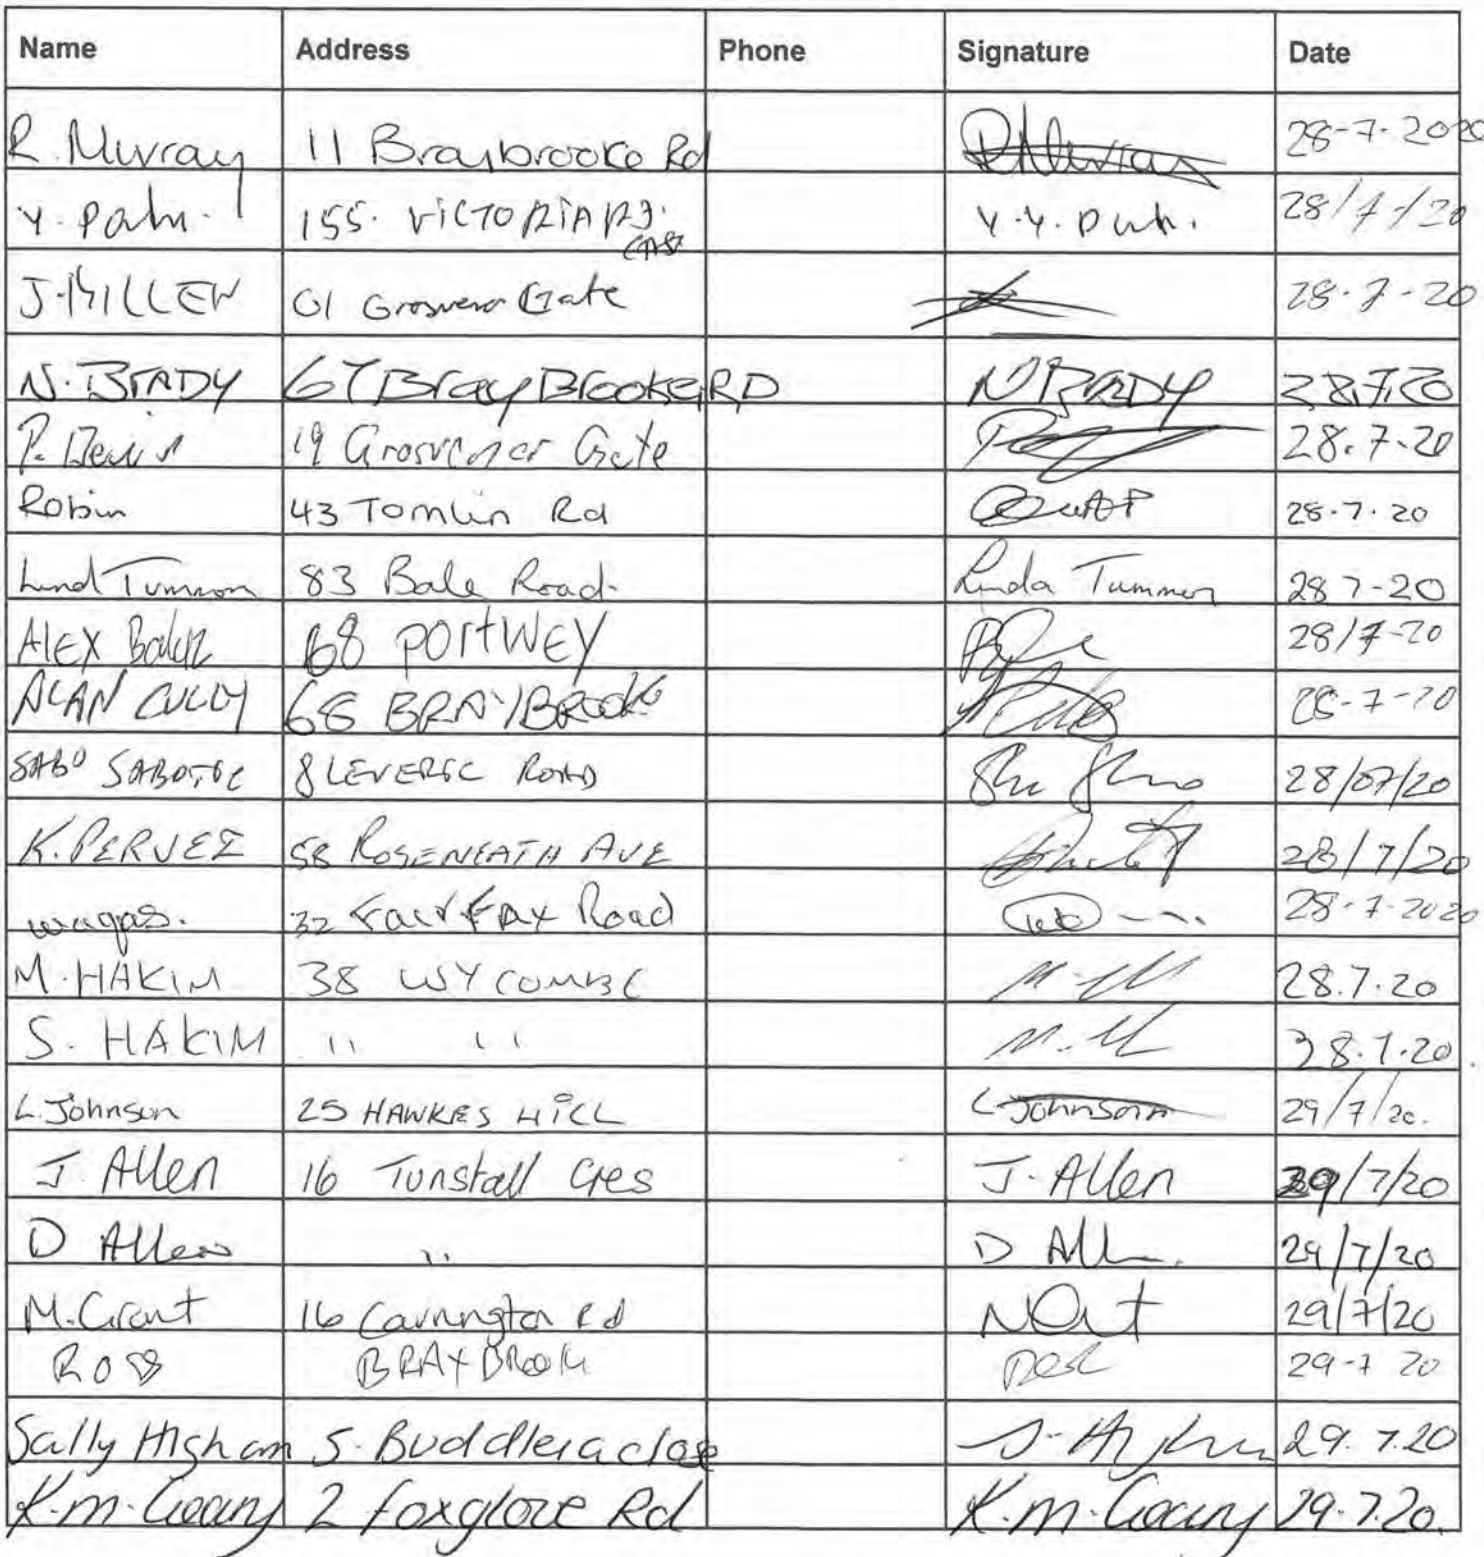 Name Address Phone Signature Date
R. Murray 11 Braybrooke Rd 28-7-2020
Y. 155. VICTORIA Y.Y. 28/7/20
J. MILLEN 61 Grosvenor Gate 28-7-20
N. BRADY 67 BrayBrooke RD N BRADY 28.7.20
P. 19 Grosvenor Gate 28.7-20
Robin 43 Tomlin Rd 28-7-20
Tummon 83 Bale Road Linda Tummon 28 7-20
ALEX 68 PORTWEY 28/7-20
ALAN CULLY 66 BRAYBROOKE 28-7-20
SABOTIC 8 LEVERIC ROAD 28/07/20
K. PERVEZ 58 ROSENEATH AVE 28/7/20
waqas. 32 FairFax Road 28-7-2020
M. HAKIM 38 WYCOMBE 28.7.20
S. HAKIM '' '' 28.7.20
L. Johnson 25 HAWKES HILL L Johnson 29/7/20.
J. Allen 16 Tunstall Cres J. Allen 29/7/20
D Allen '' D All 29/7/20
M. Grant 16 Rd 29/7/20
BRAYBROOK 29-7 20
Sally Higham 5. Buddleia close 29.7.20
K.M. Geary 2 Foxglove Rd K.M. Geary 29.7.20.